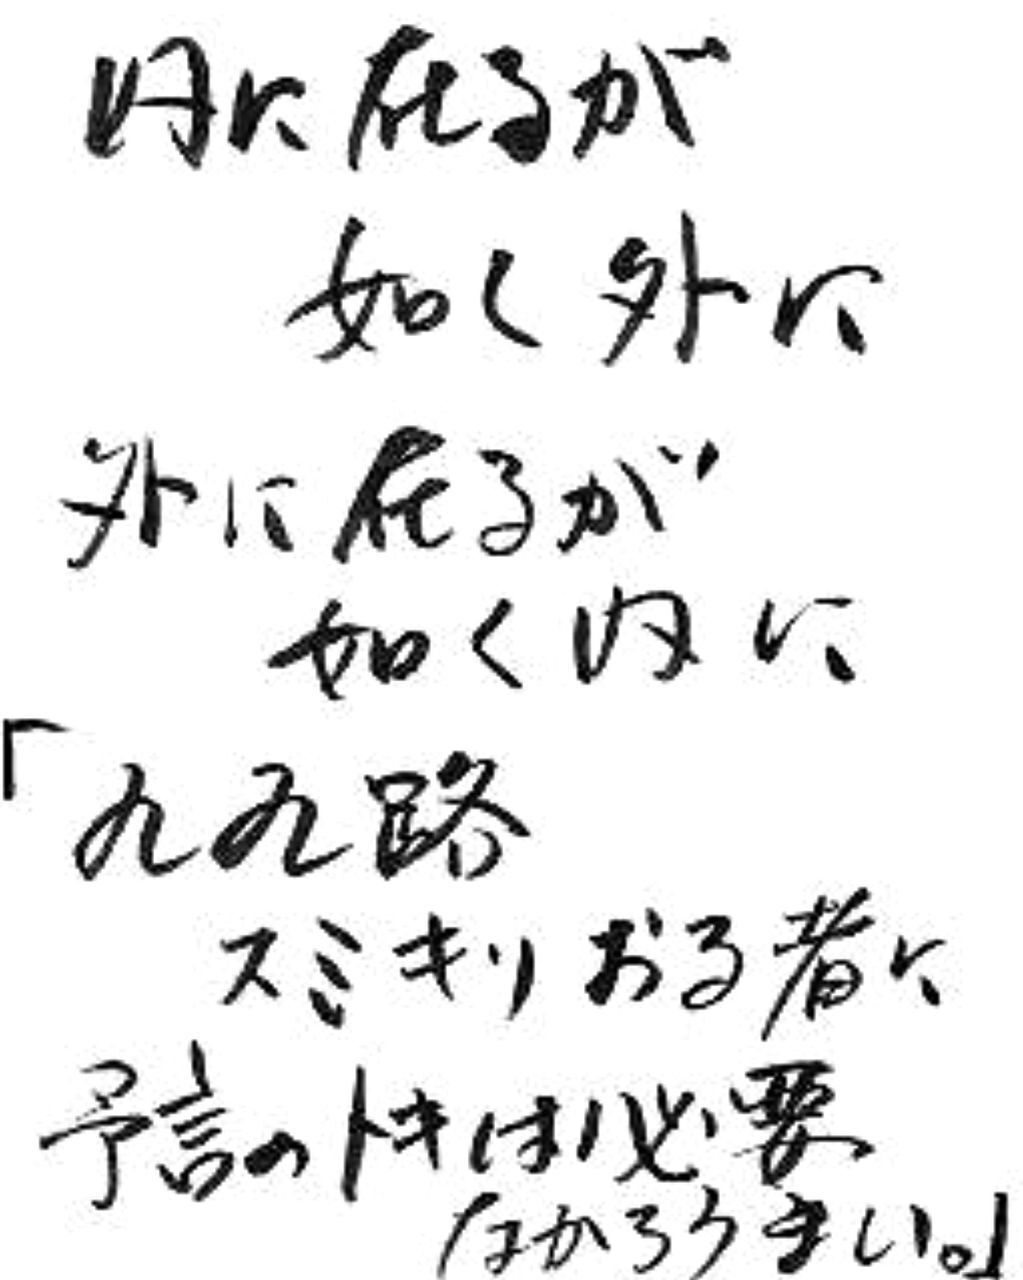 内に在るが
如く外に
外に在るが
如く内に
「九九路
スミキリおる者に
予言のトキは必要
なかろうまい。」